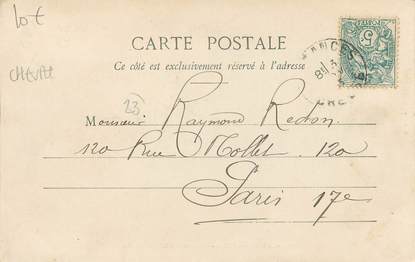 lot
CHEVAL
CARTE POSTALE
Ce côté est exclusivement réservé à l'adresse
23
Monsieur Raymond Redon
120 Rue Nollet. 120
Paris 17e